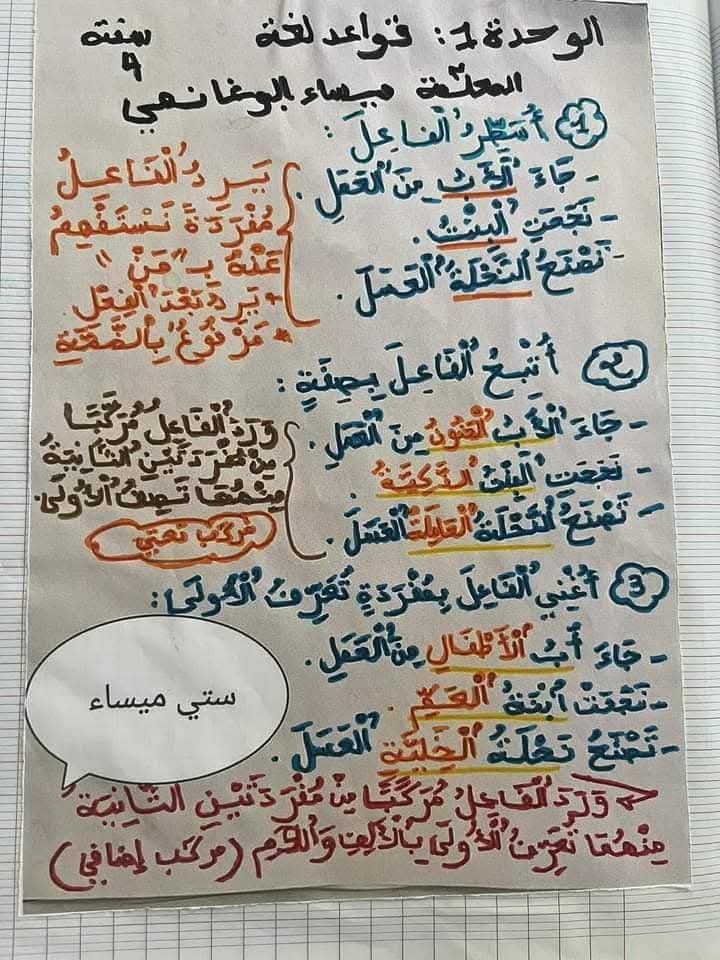 الوحدة 1: قواعد لغة سنة 4
المعلّمة ميساء البوغانمي
1 أُسَطِّرُ الْفَاعِلَ :
- جَاءَ الْأَبُ مِنَ الْعَمَلِ.
- نَجَحَتِ الْبِنْتُ.
- تَصْنَعُ النَّحْلَةُ الْعَسَلَ.
يَرِدُ الْفَاعِلُ
مُفْرَدَةً نَسْتَفْهِمُ
عَنْهُ بِـ "مَنْ"
* يَرِدُ بَعْدَ الْفِعْلِ
* مَرْفُوعٌ بِالضَّمَّةِ
2 أُتْبِعُ الْفَاعِلَ بِصِفَةٍ :
- جَاءَ الْأَبُ الْحَنُونُ مِنَ الْعَمَلِ.
- نَجَحَتِ الْبِنْتُ الذَّكِيَّةُ.
- تَصْنَعُ النَّحْلَةُ الْعَامِلَةُ الْعَسَلَ.
وَرَدَ الْفَاعِلُ مُرَكَّبًا
مِنْ مُفْرَدَتَيْنِ الثَّانِيَةُ
مِنْهُمَا تَصِفُ الْأُولَى.
مركب نعتي
3 أُغْنِي الْفَاعِلَ بِمُفْرَدَةٍ تُعَرِّفُ الْأُولَى:
- جَاءَ أَبُ الْأَطْفَالِ مِنَ الْعَمَلِ.
- نَجَحَتْ ابْنَةُ الْعَمِّ.
- تَصْنَعُ نَحْلَةُ الْخَلِيَّةِ الْعَسَلَ.
ستي ميساء
=> وَرَدَ الْفَاعِلُ مُرَكَّبًا مِنْ مُفْرَدَتَيْنِ الثَّانِيَةُ
مِنْهُمَا تُعَرِّفُ الْأُولَى بِالْأَلِفِ وَاللَّامِ (مركب إضافي)